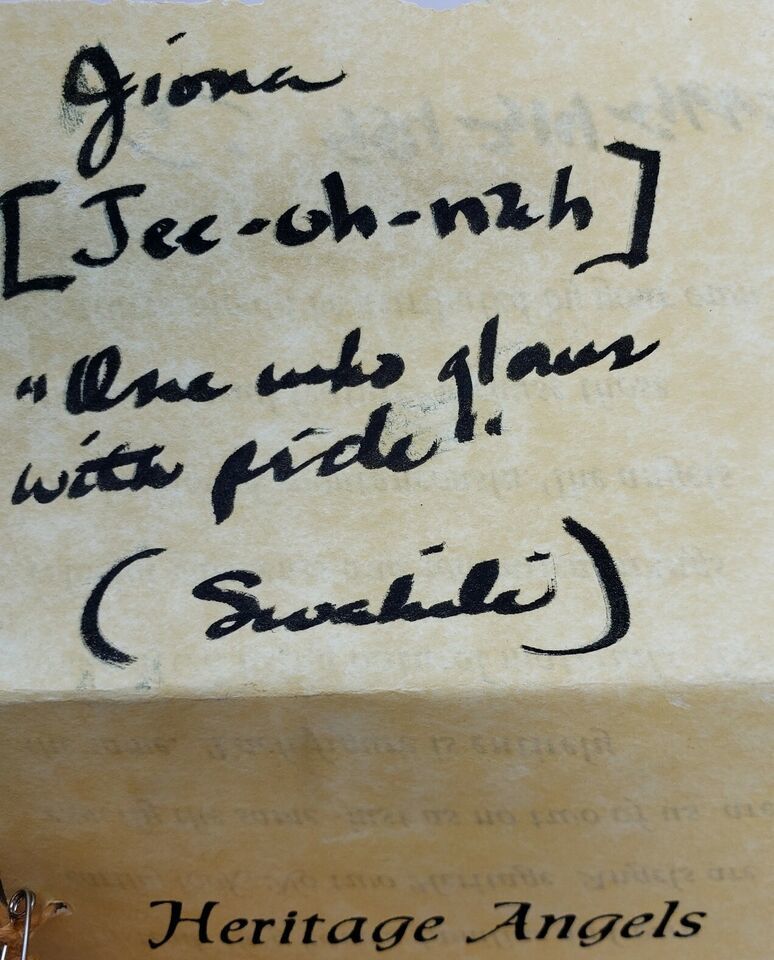 Jiona
[Jee-oh-nah]
"One who glows
with pride"
(Swahili)
Heritage Angels